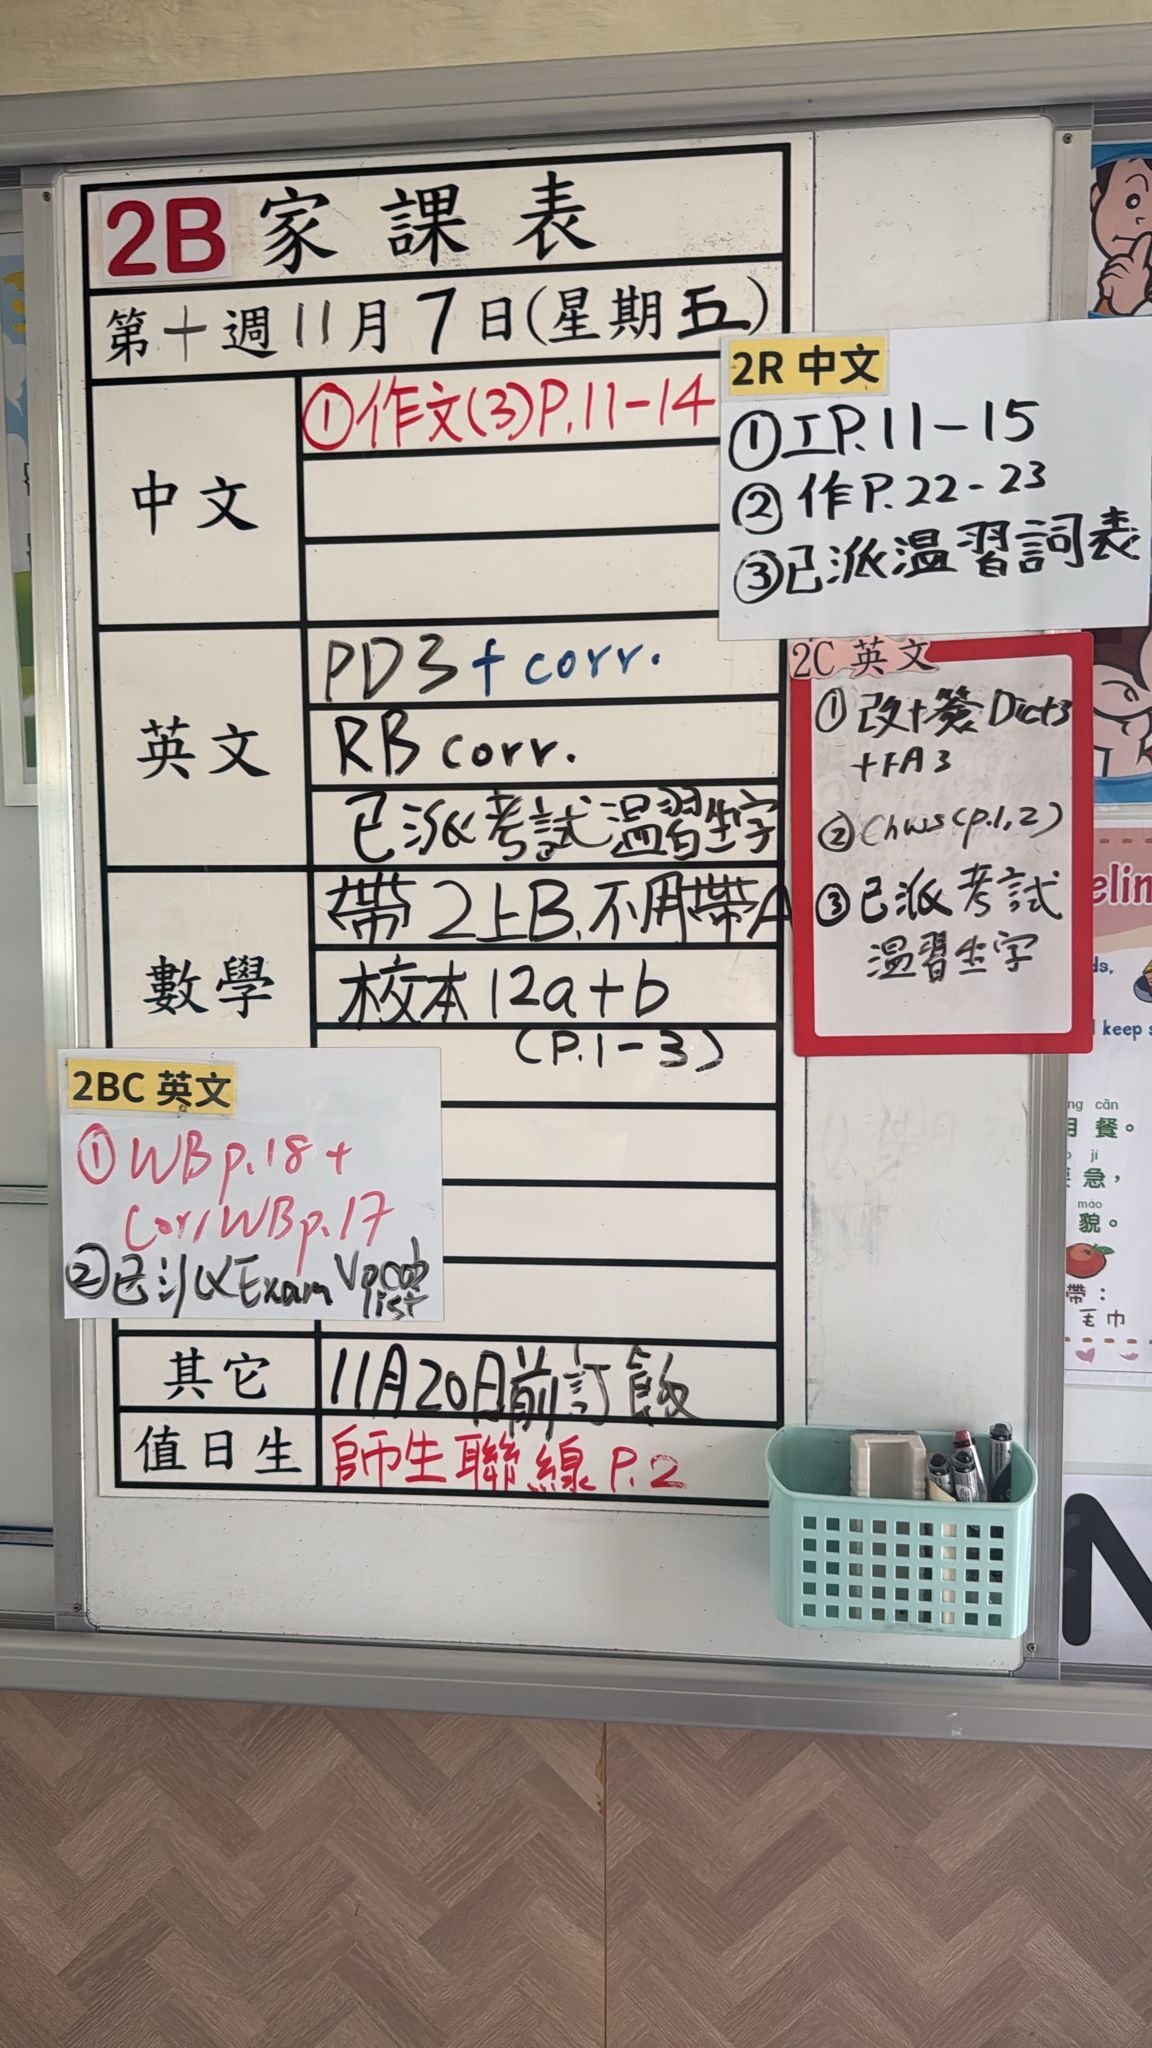 2B 家課表
第十週11月7日(星期五)
中文
①作文(3)P.11-14
英文
PD3 + corr.
RB corr.
已派考試溫習生字
數學
帶2上B,不用帶A
校本12a+b
(P.1-3)
其它
11月20日前訂飯
值日生
師生聯線 P.2
2R 中文
①工P.11-15
②作P.22-23
③已派溫習詞表
2C 英文
①改+簽Dict3
+FA3
②Chws(p.1,2)
③已派考試
溫習生字
2BC 英文
①WBp.18+
Corr WBp.17
②已派Exam Vocab
list
elin
ds,
keep s
ng cān
用餐。
jí
急,
mào
貌。
帶:
毛巾
N